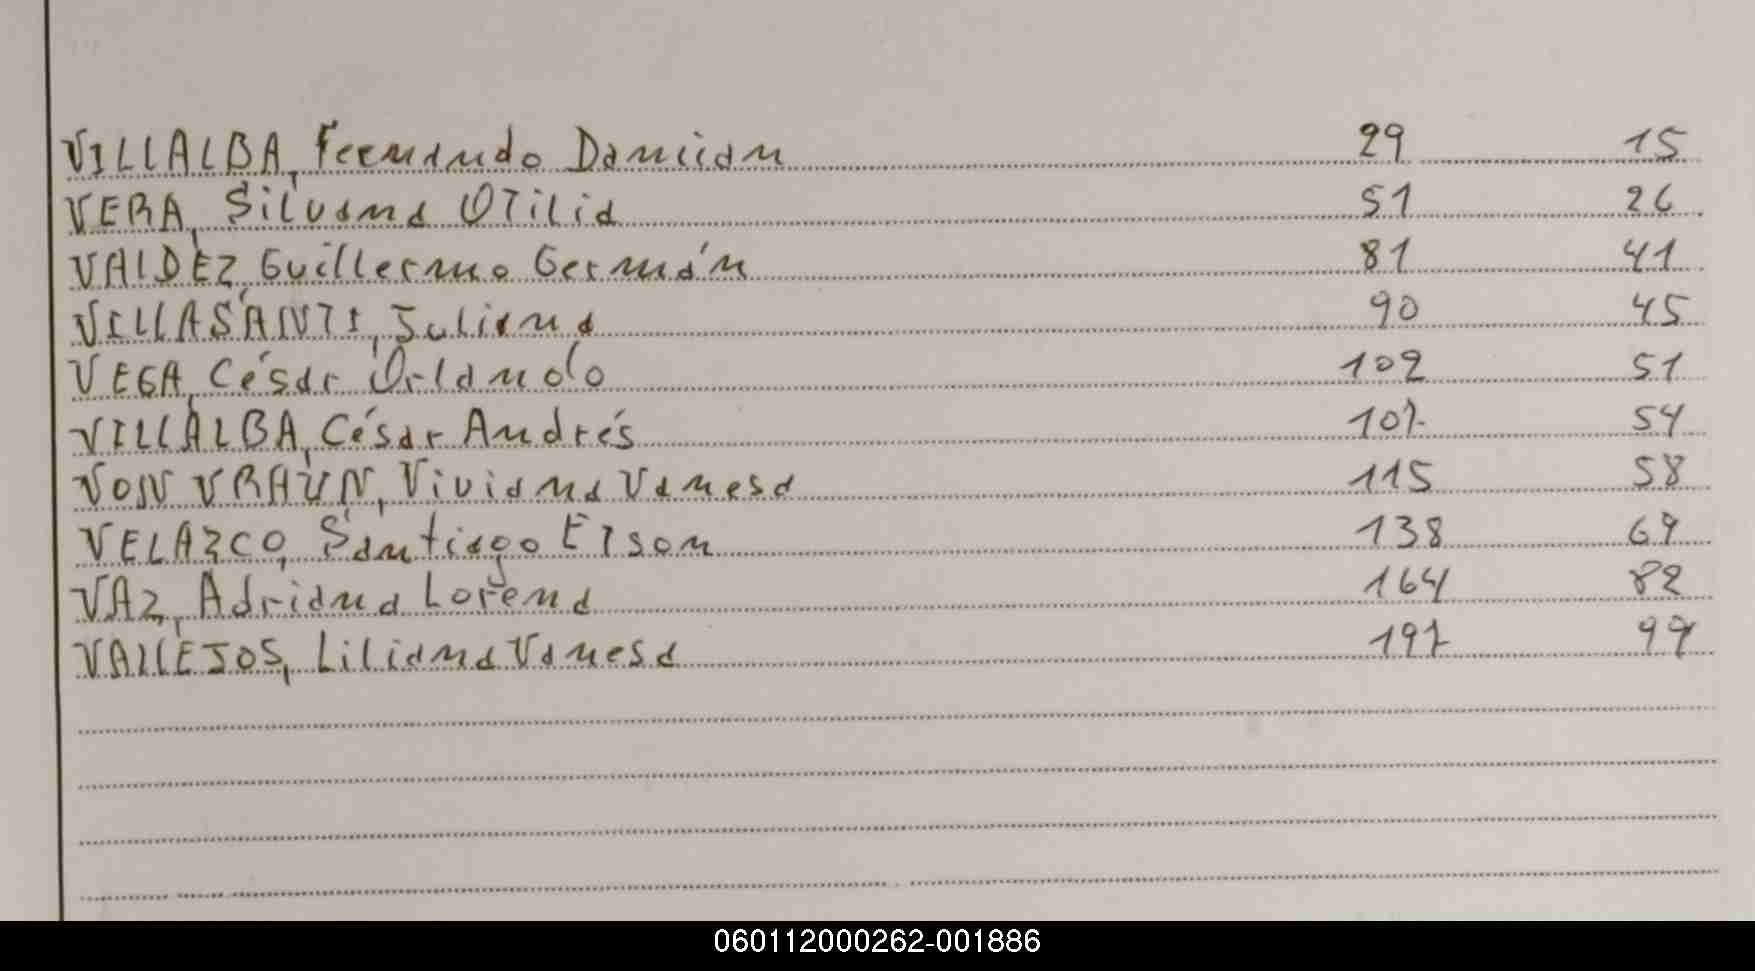 VILLALBA, Fernando Damian 29 15
VERA, Silvana Otilia 51 26
VALDEZ, Guillermo Germán 81 41
VILLASANTI, Juliana 90 45
VEGA, César Orlando 102 51
VILLALBA, César Andrés 107 54
VON VRAUN, Viviana Vanesa 115 58
VELAZCO, Santiago Elson 138 69
VAZ, Adriana Lorena 164 82
VALLEJOS, Liliana Vanesa 197 99
060112000262-001886